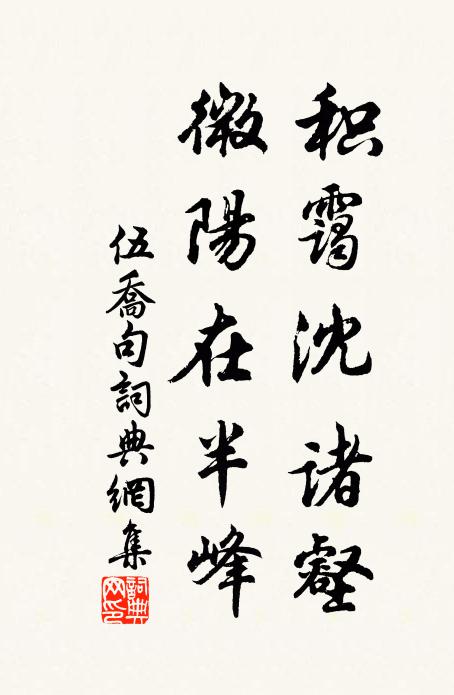 积霭沈诸壑
微陽在半峰
伍喬句詞典網集
詞典网印